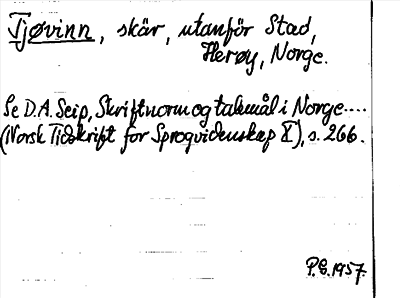 Tjøvinn, skär, utanför Stad,
Herøy, Norge.
Se D.A. Seip, Skriftnorm og talemål i Norge....
(Norsk Tidskrift for Sprogvidenskap X), s. 266.
P.G. 1957.